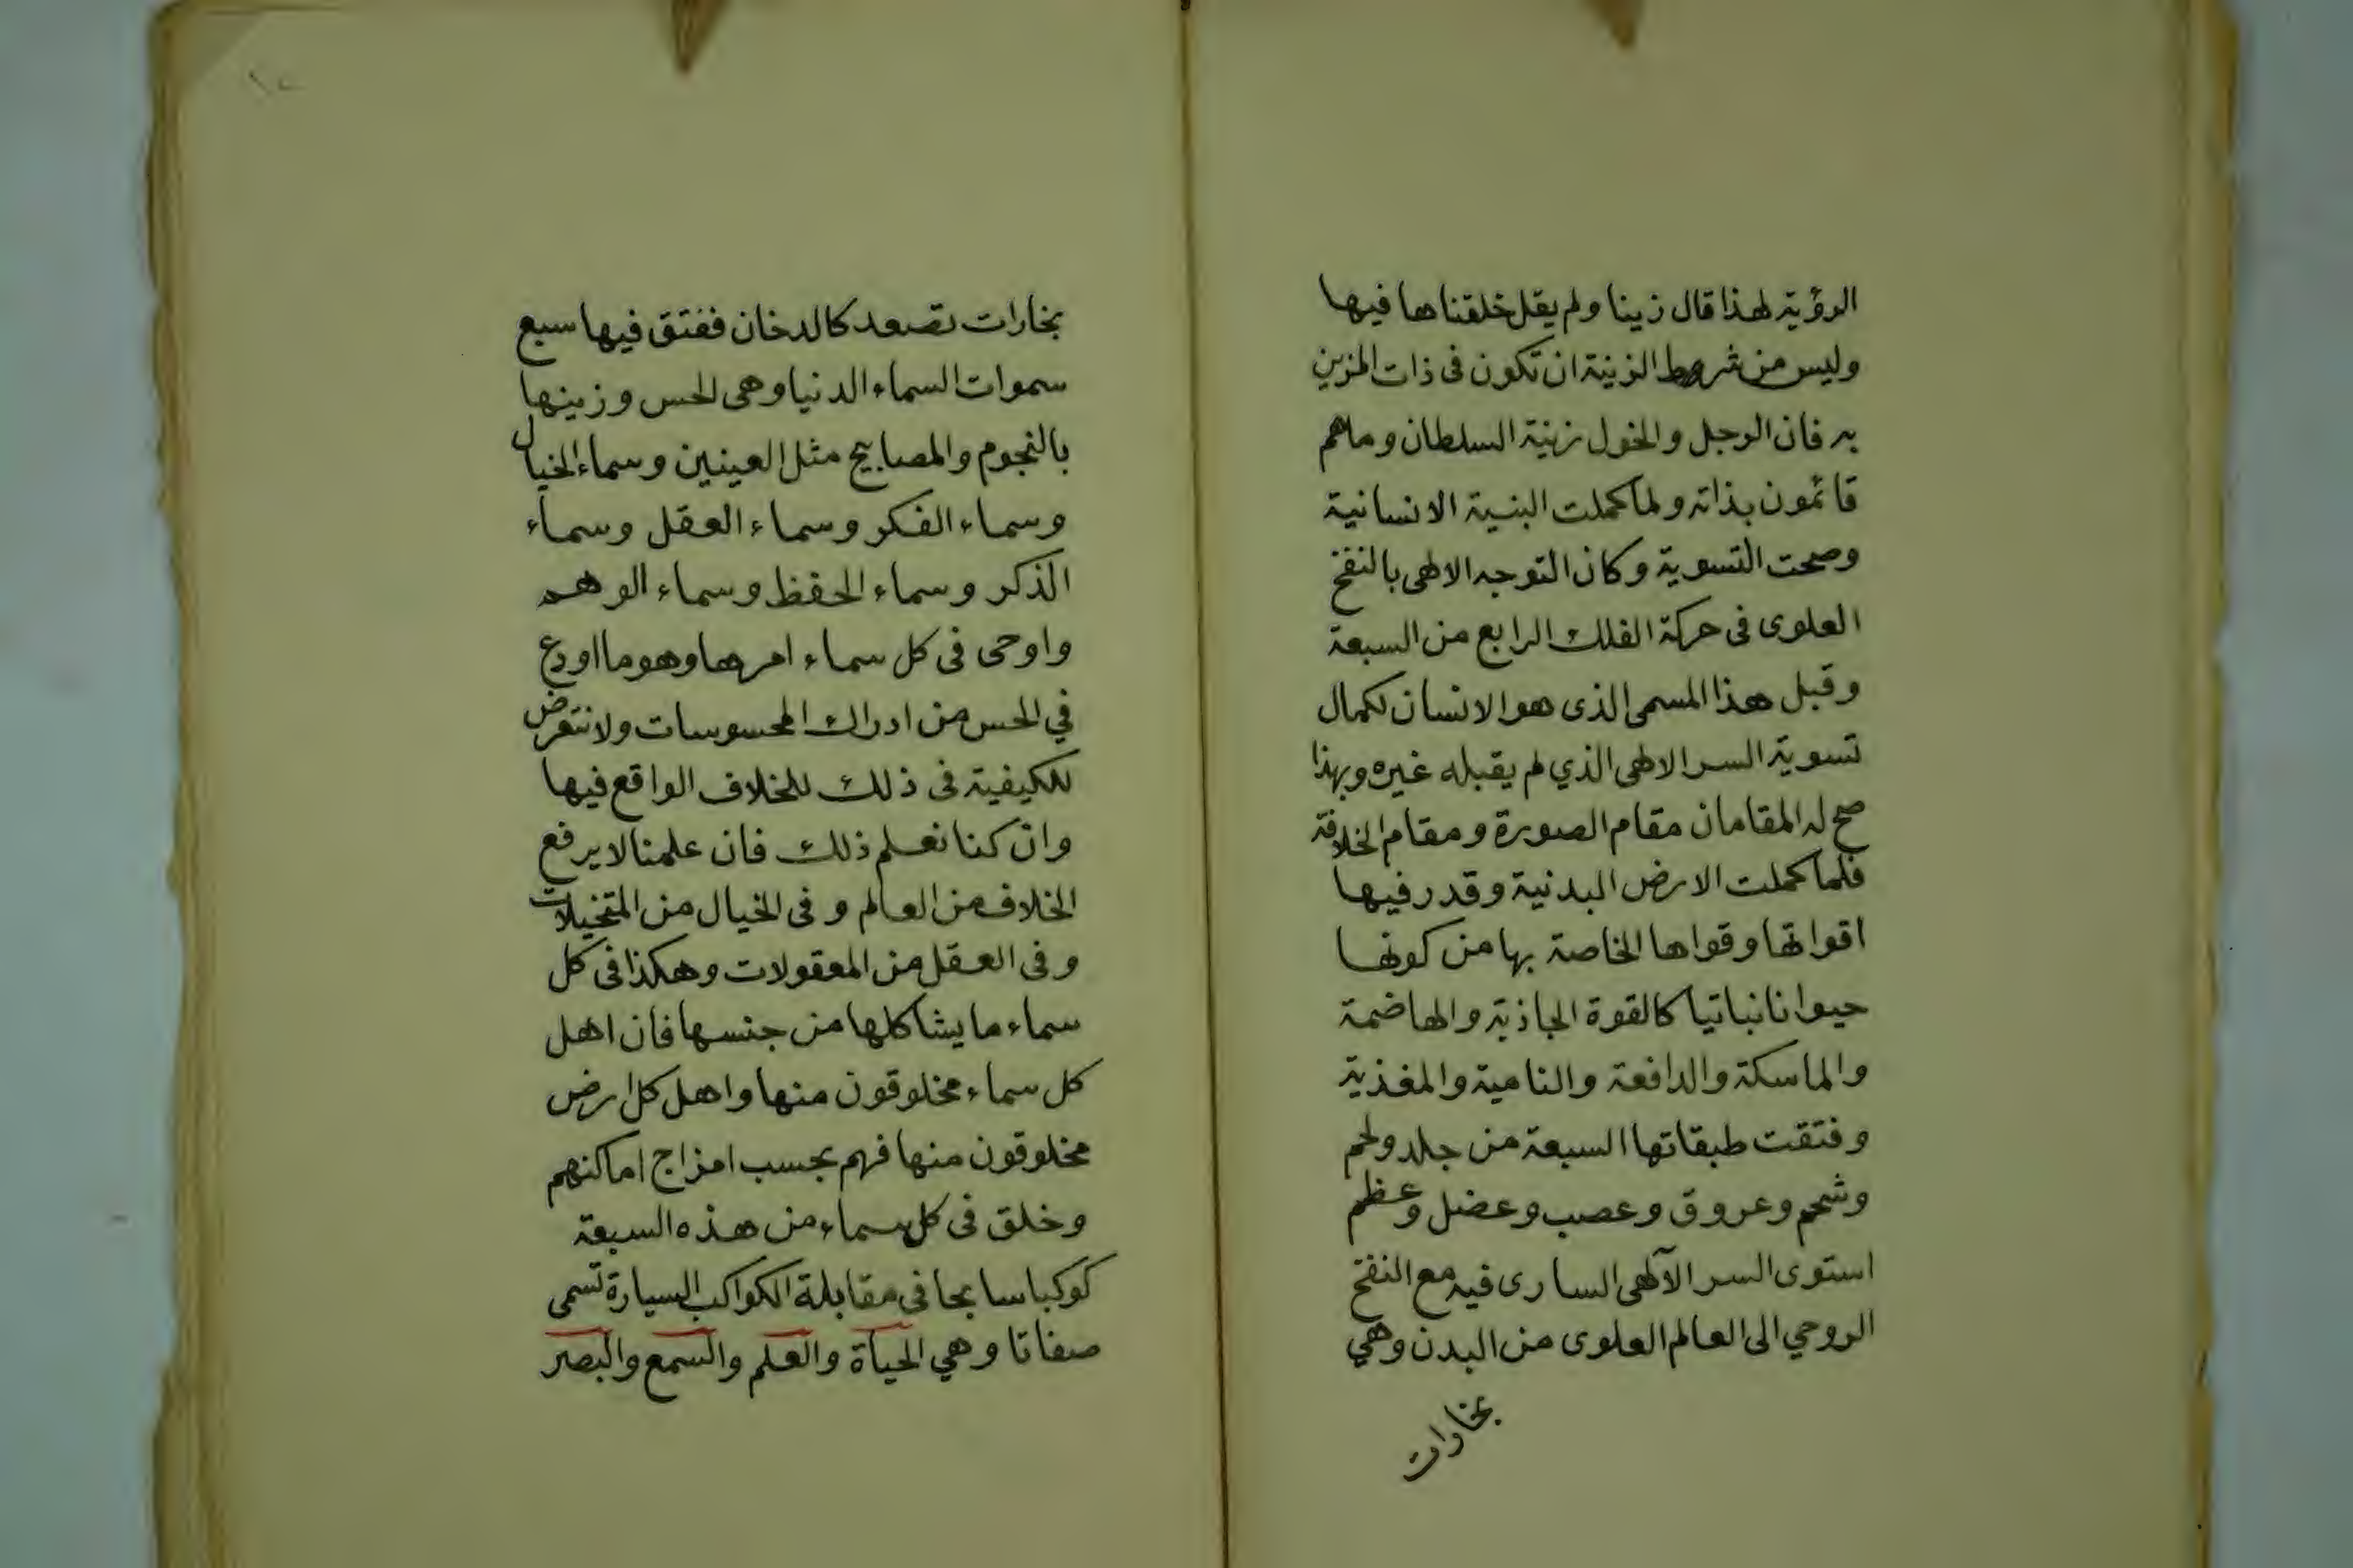 الرؤية لهذا قال زينا ولم يقل خلقناها فيها
وليس من شروط الزينة ان تكون فى ذات المزين
به فان الرجل والخول زينة السلطان وماهم
قائمون بذاته ولما كملت البنية الانسانية
وصحت التسوية وكان التوجه الالهى بالنفخ
العلوى فى حركة الفلك الرابع من السبعة
وقبل هذا المسمى الذى هو الانسان لكمال
تسوية السر الالهى الذي لم يقبله غيره وبهذا
صح له المقامان مقام الصورة ومقام الخلافة
فلما كملت الارض البدنية وقدر فيها
اقواتها وقواها الخاصة بها من كونها
حيوانا نباتيا كالقوة الجاذبة والهاضمة
والماسكة والدافعة والنامية والمغذية
وفتقت طبقاتها السبعة من جلد ولحم
وشحم وعروق وعصب وعضل وعظم
استوى السر الآلهى السارى فيه مع النفخ
الروحي الى العالم العلوى من البدن وهي
بخارات
بخارات تصعد كالدخان ففتق فيها سبع
سموات السماء الدنيا وهى الحس وزينها
بالنجوم والمصابيح مثل العينين وسماء الخيال
وسماء الفكر وسماء العقل وسماء
الذكر وسماء الحفظ وسماء الوهم
واوحى فى كل سماء امرها وهو ما اودع
في الحس من ادراك المحسوسات ولا نتعرض
للكيفية فى ذلك للخلاف الواقع فيها
وان كنا نعلم ذلك فان علمنا لا يرفع
الخلاف من العالم وفى الخيال من المتخيلات
وفى العقل من المعقولات وهكذا فى كل
سماء ما يشاكلها من جنسها فان اهل
كل سماء مخلوقون منها واهل كل ارض
مخلوقون منها فهم بحسب امزاج اماكنهم
وخلق فى كل سماء من هذه السبعة
كوكبا سابحا فى مقابلة الكواكب السيارة تسمى
صفاتا وهي الحياة والعلم والسمع والبصر